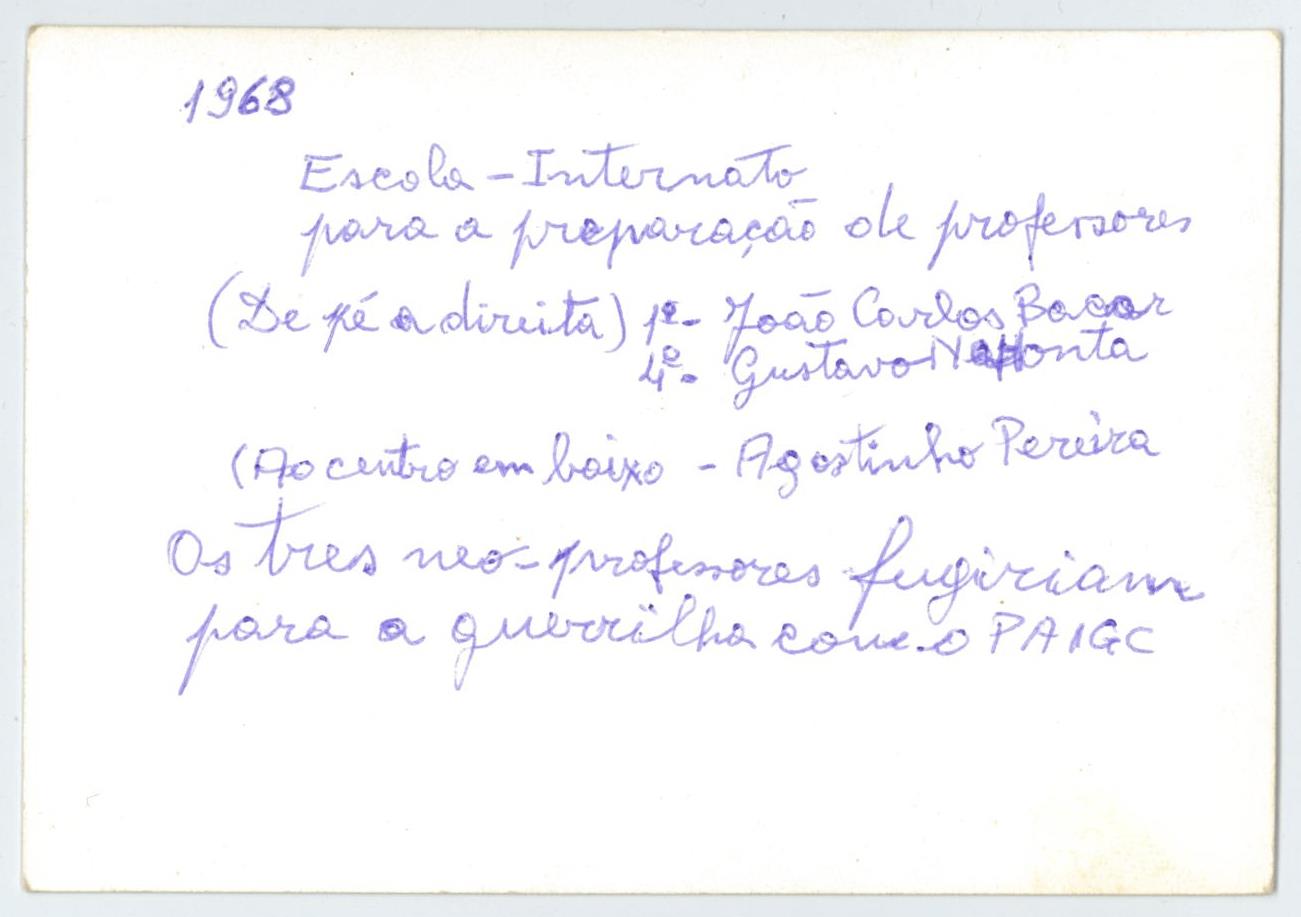 1968
Escola - Internato
para a preparação de professores
(De pé a direita) 1º- João Carlos Bacar
4º- Gustavo
(Ao centro em baixo - Agostinho Pereira
Os tres neo-professores fugiriam
para a guerrilha com o PAIGC